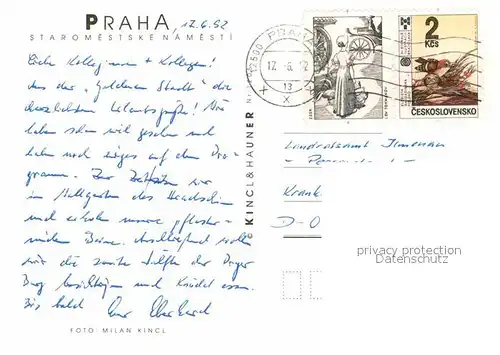 PRAHA, 12.6.92
STAROMĚSTSKÉ NÁMĚSTÍ
Liebe Kolleginnen + Kollegen!
Aus der "Goldenen Stadt" die
herzlichsten Urlaubsgrüße! Wir
haben schon viel gesehen und
haben noch einiges auf dem Pro-
gramm. Zur Zeit sitzen wir
im
und erholen unsere pflaster-
müden Beine. Anschließend wollen
wir die zweite Hälfte der Prager
Burg besichtigen und Knödel essen.
Bis bald Euer Eberhard
FOTO: MILAN KINCL
© KINCL & HAUNER
12500 PRAHA
12.-6.
13
2
Kčs
ČESKOSLOVENSKO
Landratsamt Ilmenau
- Personal
Krank
D-O
privacy protection
Datenschutz